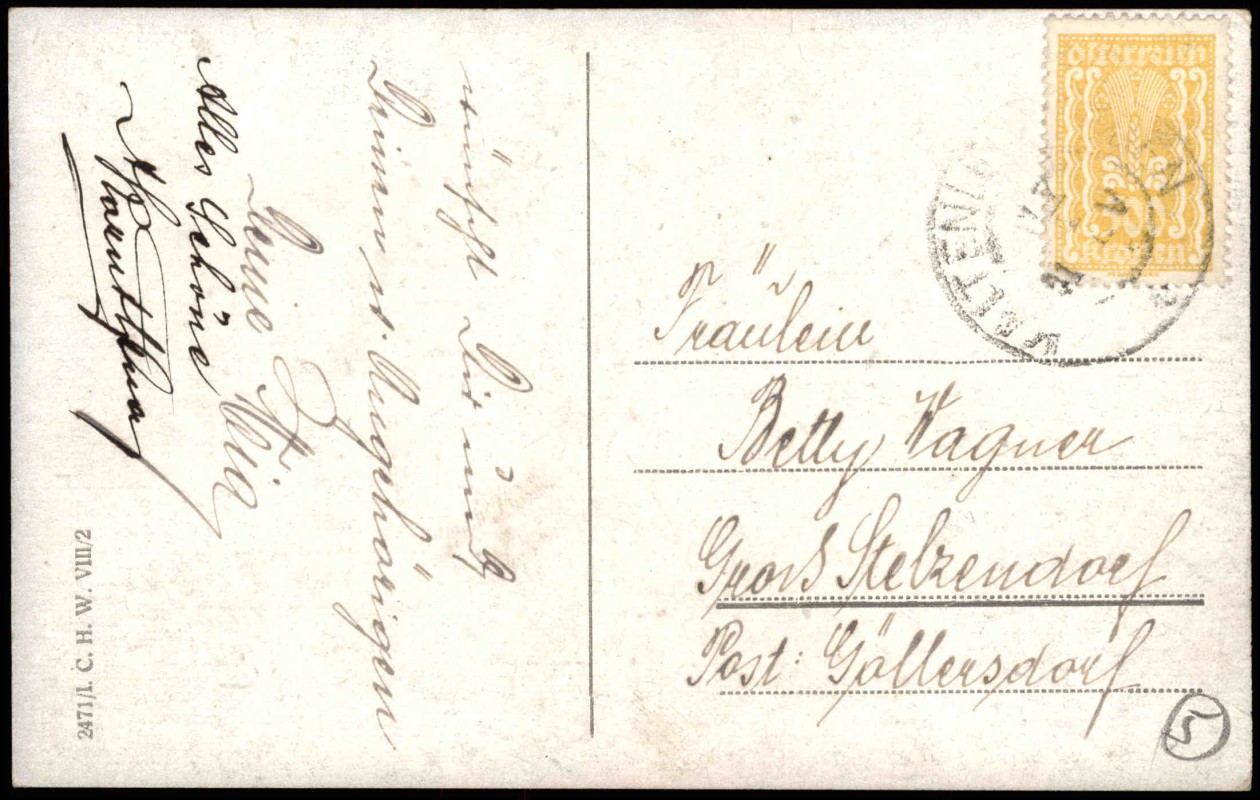 wünscht Dir und
Deinen w. Angehörigen
Deine
Mia
Alles Schöne
2471/I. C. H. W. VIII/2
Österreich
Kronen
Fräulein
Betty Wagner
Groß Stelzendorf
Post: Göllersdorf
5